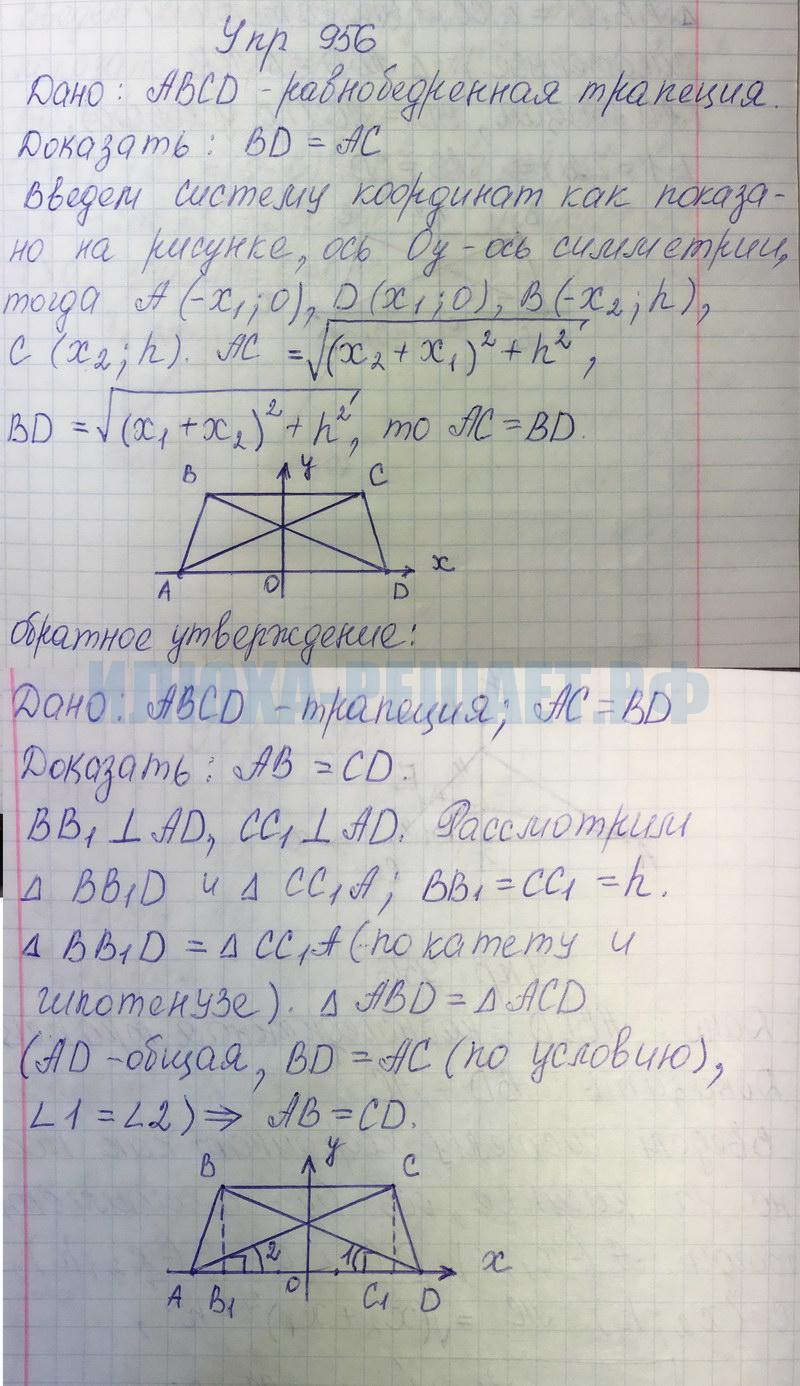 Упр 956
Дано: ABCD - равнобедренная трапеция.
Доказать: BD = AC
Введем систему координат как показа-
но на рисунке, ось Oy - ось симметрии,
тогда A (-x₁; 0), D (x₁; 0), B (-x₂; h),
C (x₂; h). AC = √(x₂ + x₁)² + h²,
BD = √(x₁ + x₂)² + h², то AC = BD.
B y C
A O D x
обратное утверждение:
ИЛЮХА-РЕШАЕТ.РФ
Дано: ABCD - трапеция; AC = BD
Доказать: AB = CD.
BB₁ ⊥ AD, CC₁ ⊥ AD. Рассмотрим
Δ BB₁D и Δ CC₁A; BB₁ = CC₁ = h.
Δ BB₁D = Δ CC₁A (по катету и
гипотенузе). Δ ABD = Δ ACD
(AD - общая, BD = AC (по условию),
∠1 = ∠2) ⇒ AB = CD.
B y C
2 1
A B₁ O C₁ D x